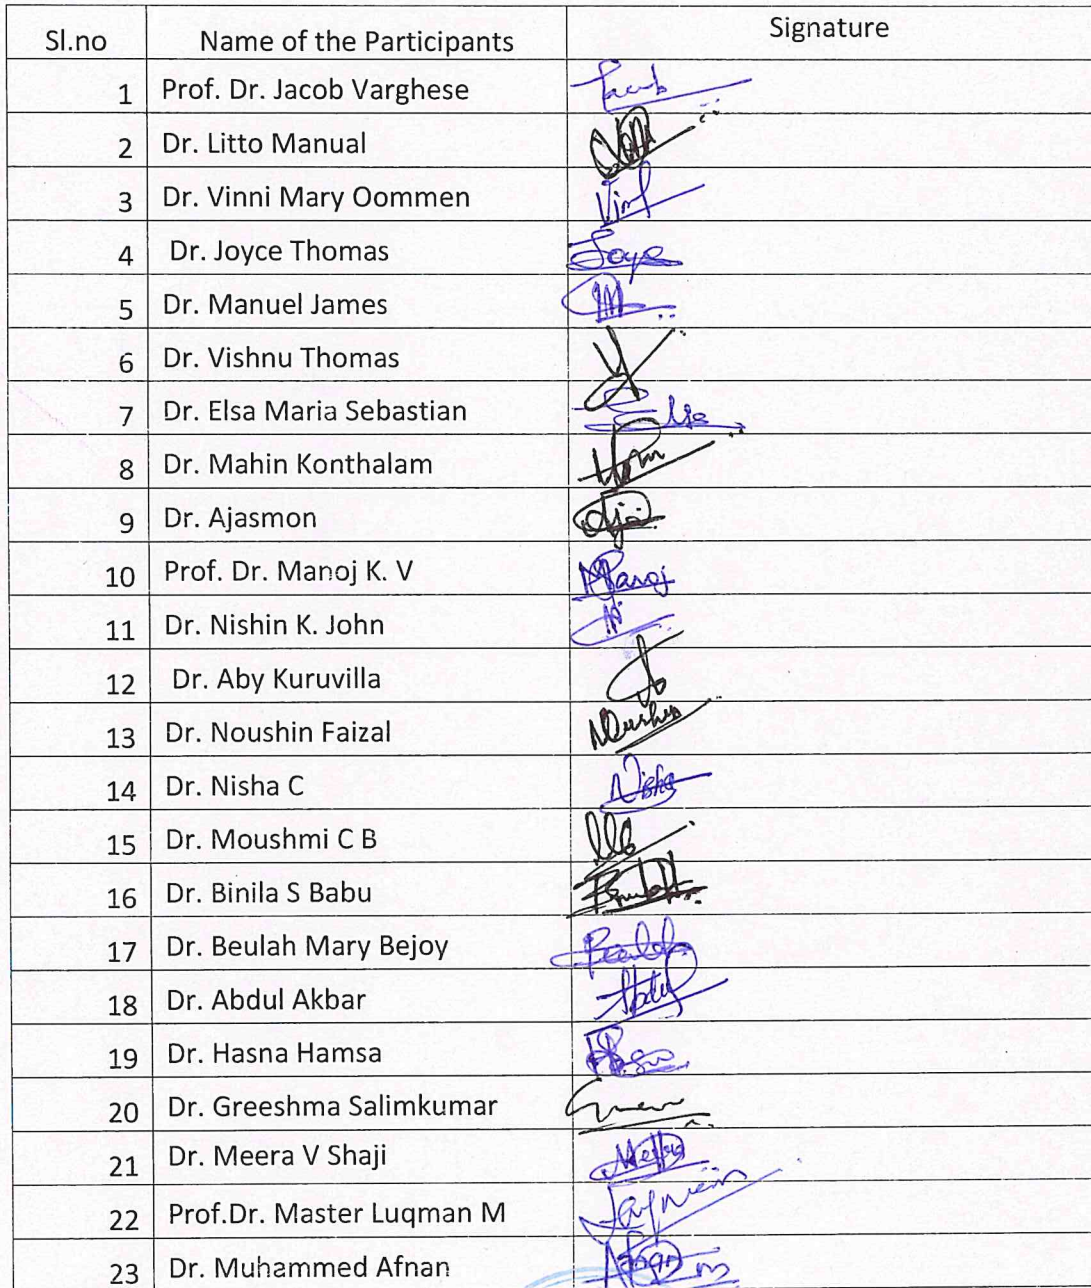 Sl.no Name of the Participants Signature
1 Prof. Dr. Jacob Varghese Jacob
2 Dr. Litto Manual
3 Dr. Vinni Mary Oommen
4 Dr. Joyce Thomas Joyce
5 Dr. Manuel James
6 Dr. Vishnu Thomas
7 Dr. Elsa Maria Sebastian
8 Dr. Mahin Konthalam
9 Dr. Ajasmon
10 Prof. Dr. Manoj K. V Manoj
11 Dr. Nishin K. John
12 Dr. Aby Kuruvilla
13 Dr. Noushin Faizal Noushin
14 Dr. Nisha C Nisha
15 Dr. Moushmi C B
16 Dr. Binila S Babu
17 Dr. Beulah Mary Bejoy Beulah
18 Dr. Abdul Akbar Abdul
19 Dr. Hasna Hamsa
20 Dr. Greeshma Salimkumar
21 Dr. Meera V Shaji Meera
22 Prof.Dr. Master Luqman M
23 Dr. Muhammed Afnan Afnan